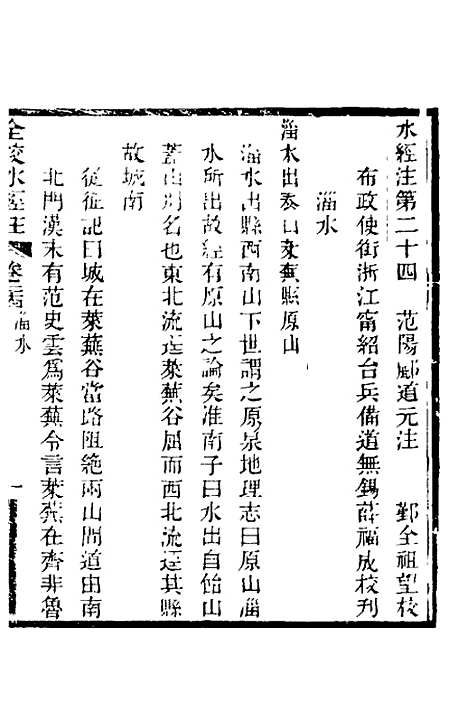 水經注第二十四　范陽酈道元注　鄞全祖望校
布政使銜浙江甯紹台兵備道無錫薛福成校刊
淄水
淄水出泰山萊蕪縣原山
淄水出縣西南山下世謂之原泉地理志曰原山淄
水所出故經有原山之論矣淮南子曰水出自飴山
蓋山別名也東北流逕萊蕪谷屈而西北流逕其縣
故城南
從征記曰城在萊蕪谷當路阻絶兩山間道由南
北門漢末有范史雲爲萊蕪令言萊蕪在齊非魯
全校水經注　卷二十四　淄水　一